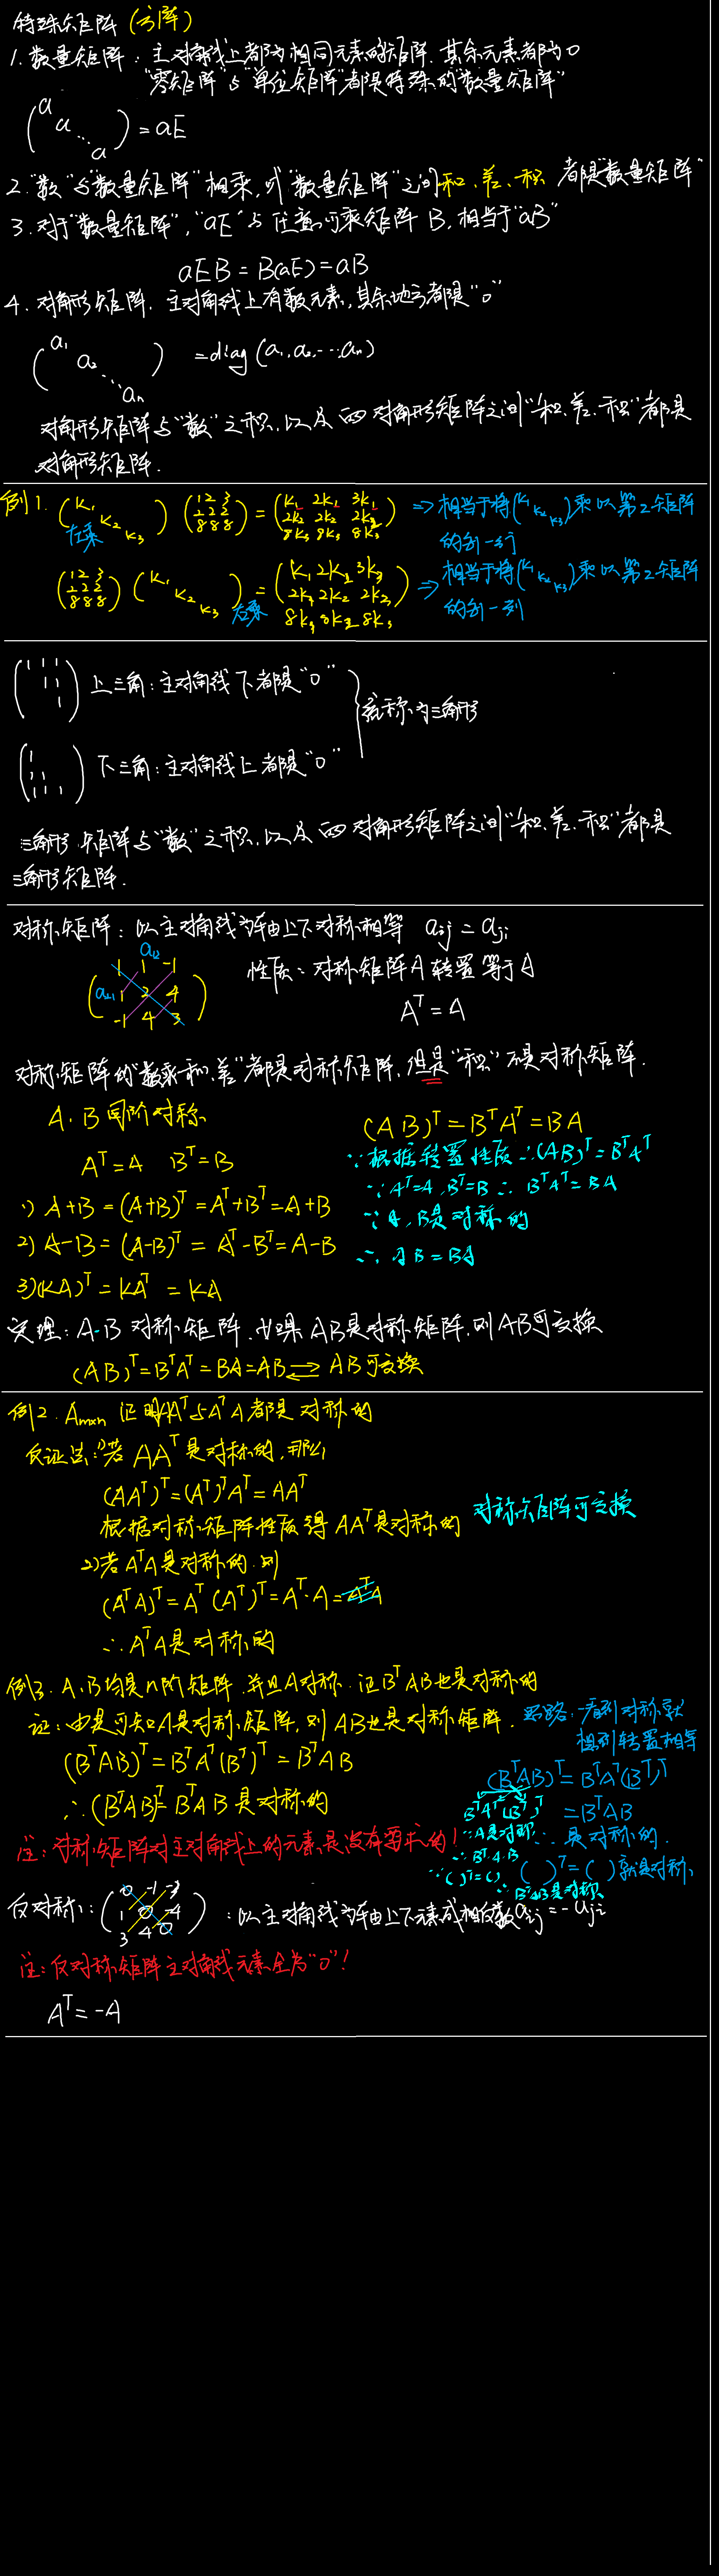 特殊矩阵 (方阵)
1. 数量矩阵: 主对角线上都为相同元素的矩阵. 其余元素都为0
"零矩阵"与"单位矩阵"都是特殊的"数量矩阵"
(a a ⋱ a) = aE
2. "数"与"数量矩阵"相乘, 或"数量矩阵"之间和、差、积 都是"数量矩阵"
3. 对于"数量矩阵", "aE"与任意可乘矩阵B, 相当于"aB"
aEB = B(aE) = aB
4. 对角形矩阵. 主对角线上有数元素, 其余地方都是"0"
(a₁ a₂ ⋱ aₙ) = diag (a₁, a₂, ⋯ aₙ)
对角形矩阵与"数"之积, 以及两对角形矩阵之间"和、差、积"都是
对角形矩阵.
例1. (K₁ K₂ K₃) (1 2 3 / 2 2 2 / 8 8 8) = (K₁ 2K₁ 3K₁ / 2K₂ 2K₂ 2K₂ / 8K₃ 8K₃ 8K₃) ⇒ 相当于将(K₁ K₂ K₃)乘以第2矩阵
左乘
的每一行
(1 2 3 / 2 2 2 / 8 8 8) (K₁ K₂ K₃) = (K₁ 2K₂ 3K₃ / 2K₁ 2K₂ 2K₃ / 8K₁ 8K₂ 8K₃) ⇒ 相当于将(K₁ K₂ K₃)乘以第2矩阵
右乘
的每一列
(1 1 1 / 1 1 / 1) 上三角: 主对角线下都是"0"
统称为三角形
(1 / 1 1 / 1 1 1) 下三角: 主对角线上都是"0"
三角形矩阵与"数"之积, 以及两对角形矩阵之间"和、差、积"都是
三角形矩阵.
对称矩阵: 以主对角线为轴由上下对称相等 aij = aji
a₁₂
a₂₁
(1 1 -1 / 1 2 4 / -1 4 3)
性质: 对称矩阵A转置等于A
Aᵀ = A
对称矩阵的"数乘和、差"都是对称矩阵, 但是"积"不是对称矩阵.
A、B同阶对称
Aᵀ=A Bᵀ=B
1) A+B = (A+B)ᵀ = Aᵀ+Bᵀ = A+B
2) A-B = (A-B)ᵀ = Aᵀ-Bᵀ = A-B
3) (KA)ᵀ = KAᵀ = KA
(AB)ᵀ = BᵀAᵀ = BA
∵ 根据转置性质 ∴ (AB)ᵀ = BᵀAᵀ
∵ Aᵀ=A, Bᵀ=B ∴ BᵀAᵀ = BA
∵ A, B是对称的
∴ AB = BA
定理: A·B 对称矩阵, 如果AB是对称矩阵, 则AB可交换
(AB)ᵀ = BᵀAᵀ = BA = AB ⇌ AB可交换
例2. Amxn 证明AAᵀ与AᵀA都是对称的
反证法: 1)若AAᵀ是对称的, 那么
(AAᵀ)ᵀ = (Aᵀ)ᵀAᵀ = AAᵀ
根据对称矩阵性质得AAᵀ是对称的 对称矩阵可交换
2)若AᵀA是对称的. 则
(AᵀA)ᵀ = Aᵀ(Aᵀ)ᵀ = Aᵀ·A = AᵀA
∴ AᵀA是对称的
例3. A、B均是n阶矩阵, 并且A对称. 证BᵀAB也是对称的
证: 由是可知A是对称矩阵, 则AB也是对称矩阵.
(BᵀAB)ᵀ = BᵀAᵀ(Bᵀ)ᵀ = BᵀAB
∴ (BᵀAB)ᵀ = BᵀAB是对称的
思路: 一看到对称就
想到转置相等
(BᵀAB)ᵀ = BᵀAᵀ(Bᵀ)ᵀ
= BᵀAB
∴ 是对称的.
( )ᵀ = ( ) 就是对称
BᵀAᵀ(Bᵀ)ᵀ
∵ A是对称
∴ Bᵀ·A·B
∵ ( )ᵀ = ( )
∴ BᵀAB是对称
注: 对称矩阵对主对角线上的元素是没有要求的!
反对称: (0 -1 -3 / 1 0 -4 / 3 4 0) : 以主对角线为轴由上下元素成相反数 aij = -aji
注: 反对称矩阵主对角线元素全为"0"!
Aᵀ = -A